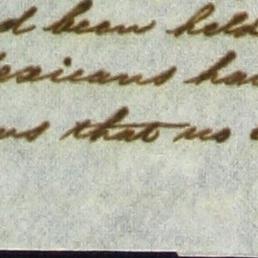 d been held
exicans ha
us that no